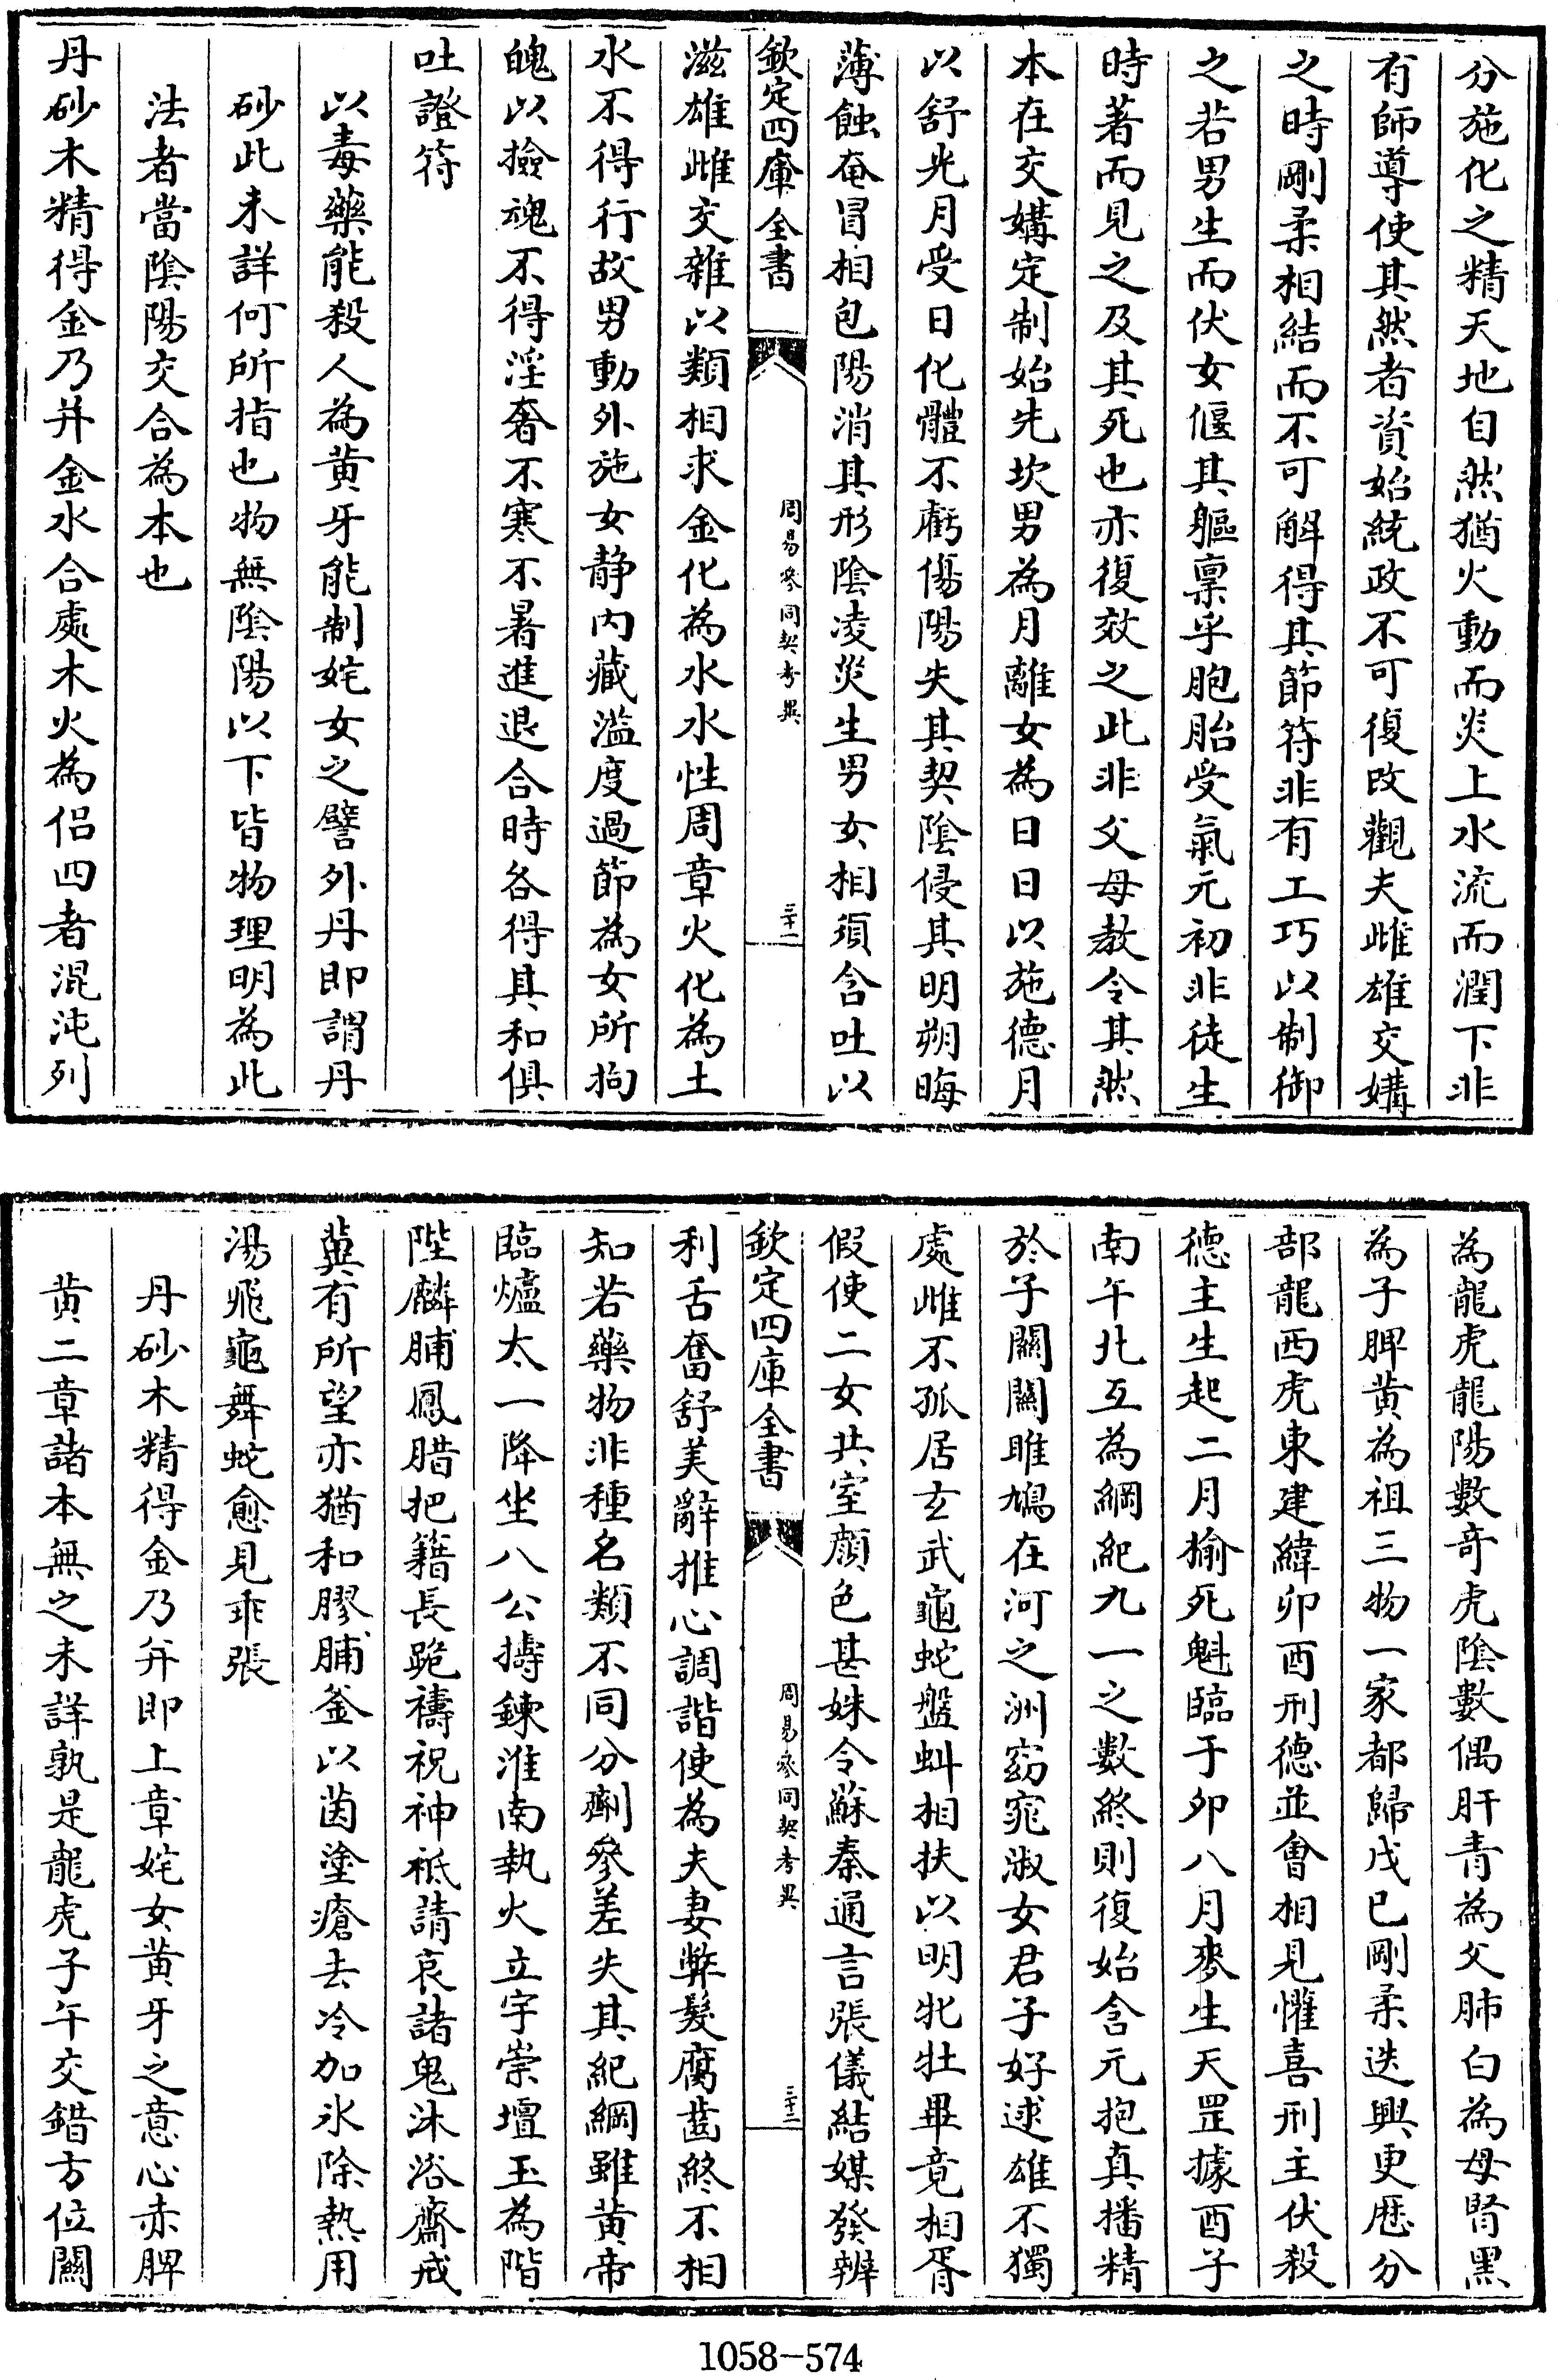 分施化之精天地自然猶火動而炎上水流而潤下非
有師導使其然者資始統政不可復改觀夫雌雄交媾
之時剛柔相結而不可解得其節符非有工巧以制御
之若男生而伏女偃其軀稟乎胞胎受氣元初非徒生
時著而見之及其死也亦復效之此非父母教令其然
本在交媾定制始先坎男為月離女為日日以施德月
以舒光月受日化體不虧傷陽失其契陰侵其明朔晦
薄蝕奄冒相包陽消其形陰凌災生男女相須含吐以
欽定四庫全書
周易參同契考異
三十一
滋雄雌交雜以類相求金化為水水性周章火化為土
水不得行故男動外施女静内藏溢度過節為女所拘
魄以撿魂不得淫奢不寒不暑進退合時各得其和俱
吐證符
以毒藥能殺人為黄牙能制姹女之譬外丹即謂丹
砂此未詳何所指也物無陰陽以下皆物理明為此
法者當陰陽交合為本也
丹砂木精得金乃并金水合處木火為侣四者混沌列
為龍虎龍陽數奇虎陰數偶肝青為父肺白為母腎黑
為子脾黄為祖三物一家都歸戊已剛柔迭興更歴分
部龍西虎東建緯卯酉刑德並會相見懽喜刑主伏殺
德主生起二月榆死魁臨于卯八月麥生天罡據酉子
南午北互為綱紀九一之數終則復始含元抱真播精
於子關關雎鳩在河之洲窈窕淑女君子好逑雄不獨
處雌不孤居玄武龜蛇盤虯相扶以明牝牡畢竟相胥
假使二女共室顔色甚姝令蘇秦通言張儀結媒發辨
欽定四庫全書
周易參同契考異
三十二
利舌奮舒美辭推心調諧使為夫妻弊髮腐齒終不相
知若藥物非種名類不同分劑參差失其紀綱雖黄帝
臨爐太一降坐八公擣鍊淮南執火立宇崇壇玉為階
陛麟脯鳳腊把籍長跪禱祝神祇請哀諸鬼沐浴齋戒
冀有所望亦猶和膠脯釜以茵塗瘡去冷加氷除熱用
湯飛龜舞蛇愈見乖張
丹砂木精得金乃并即上章姹女黄牙之意心赤脾
黄二章諸本無之未詳孰是龍虎子午交錯方位關
1058-574